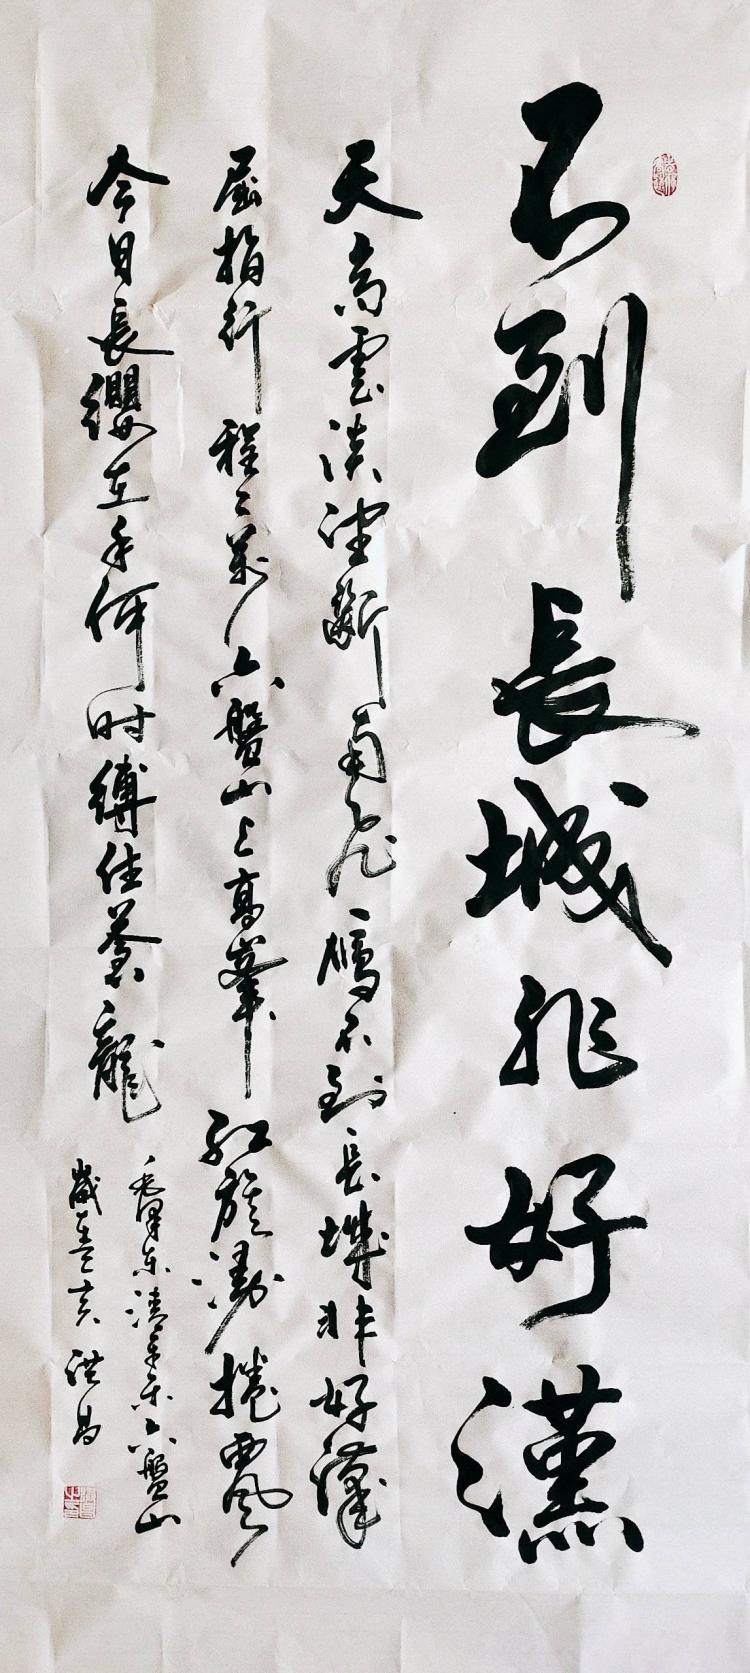 不到長城非好漢
天高雲淡望斷南飛雁不到長城非好漢
屈指行程二萬六盤山上高峯紅旗漫捲西風
今日長纓在手何时縛住蒼龍
毛澤东清平乐六盤山
歲亥洪昌